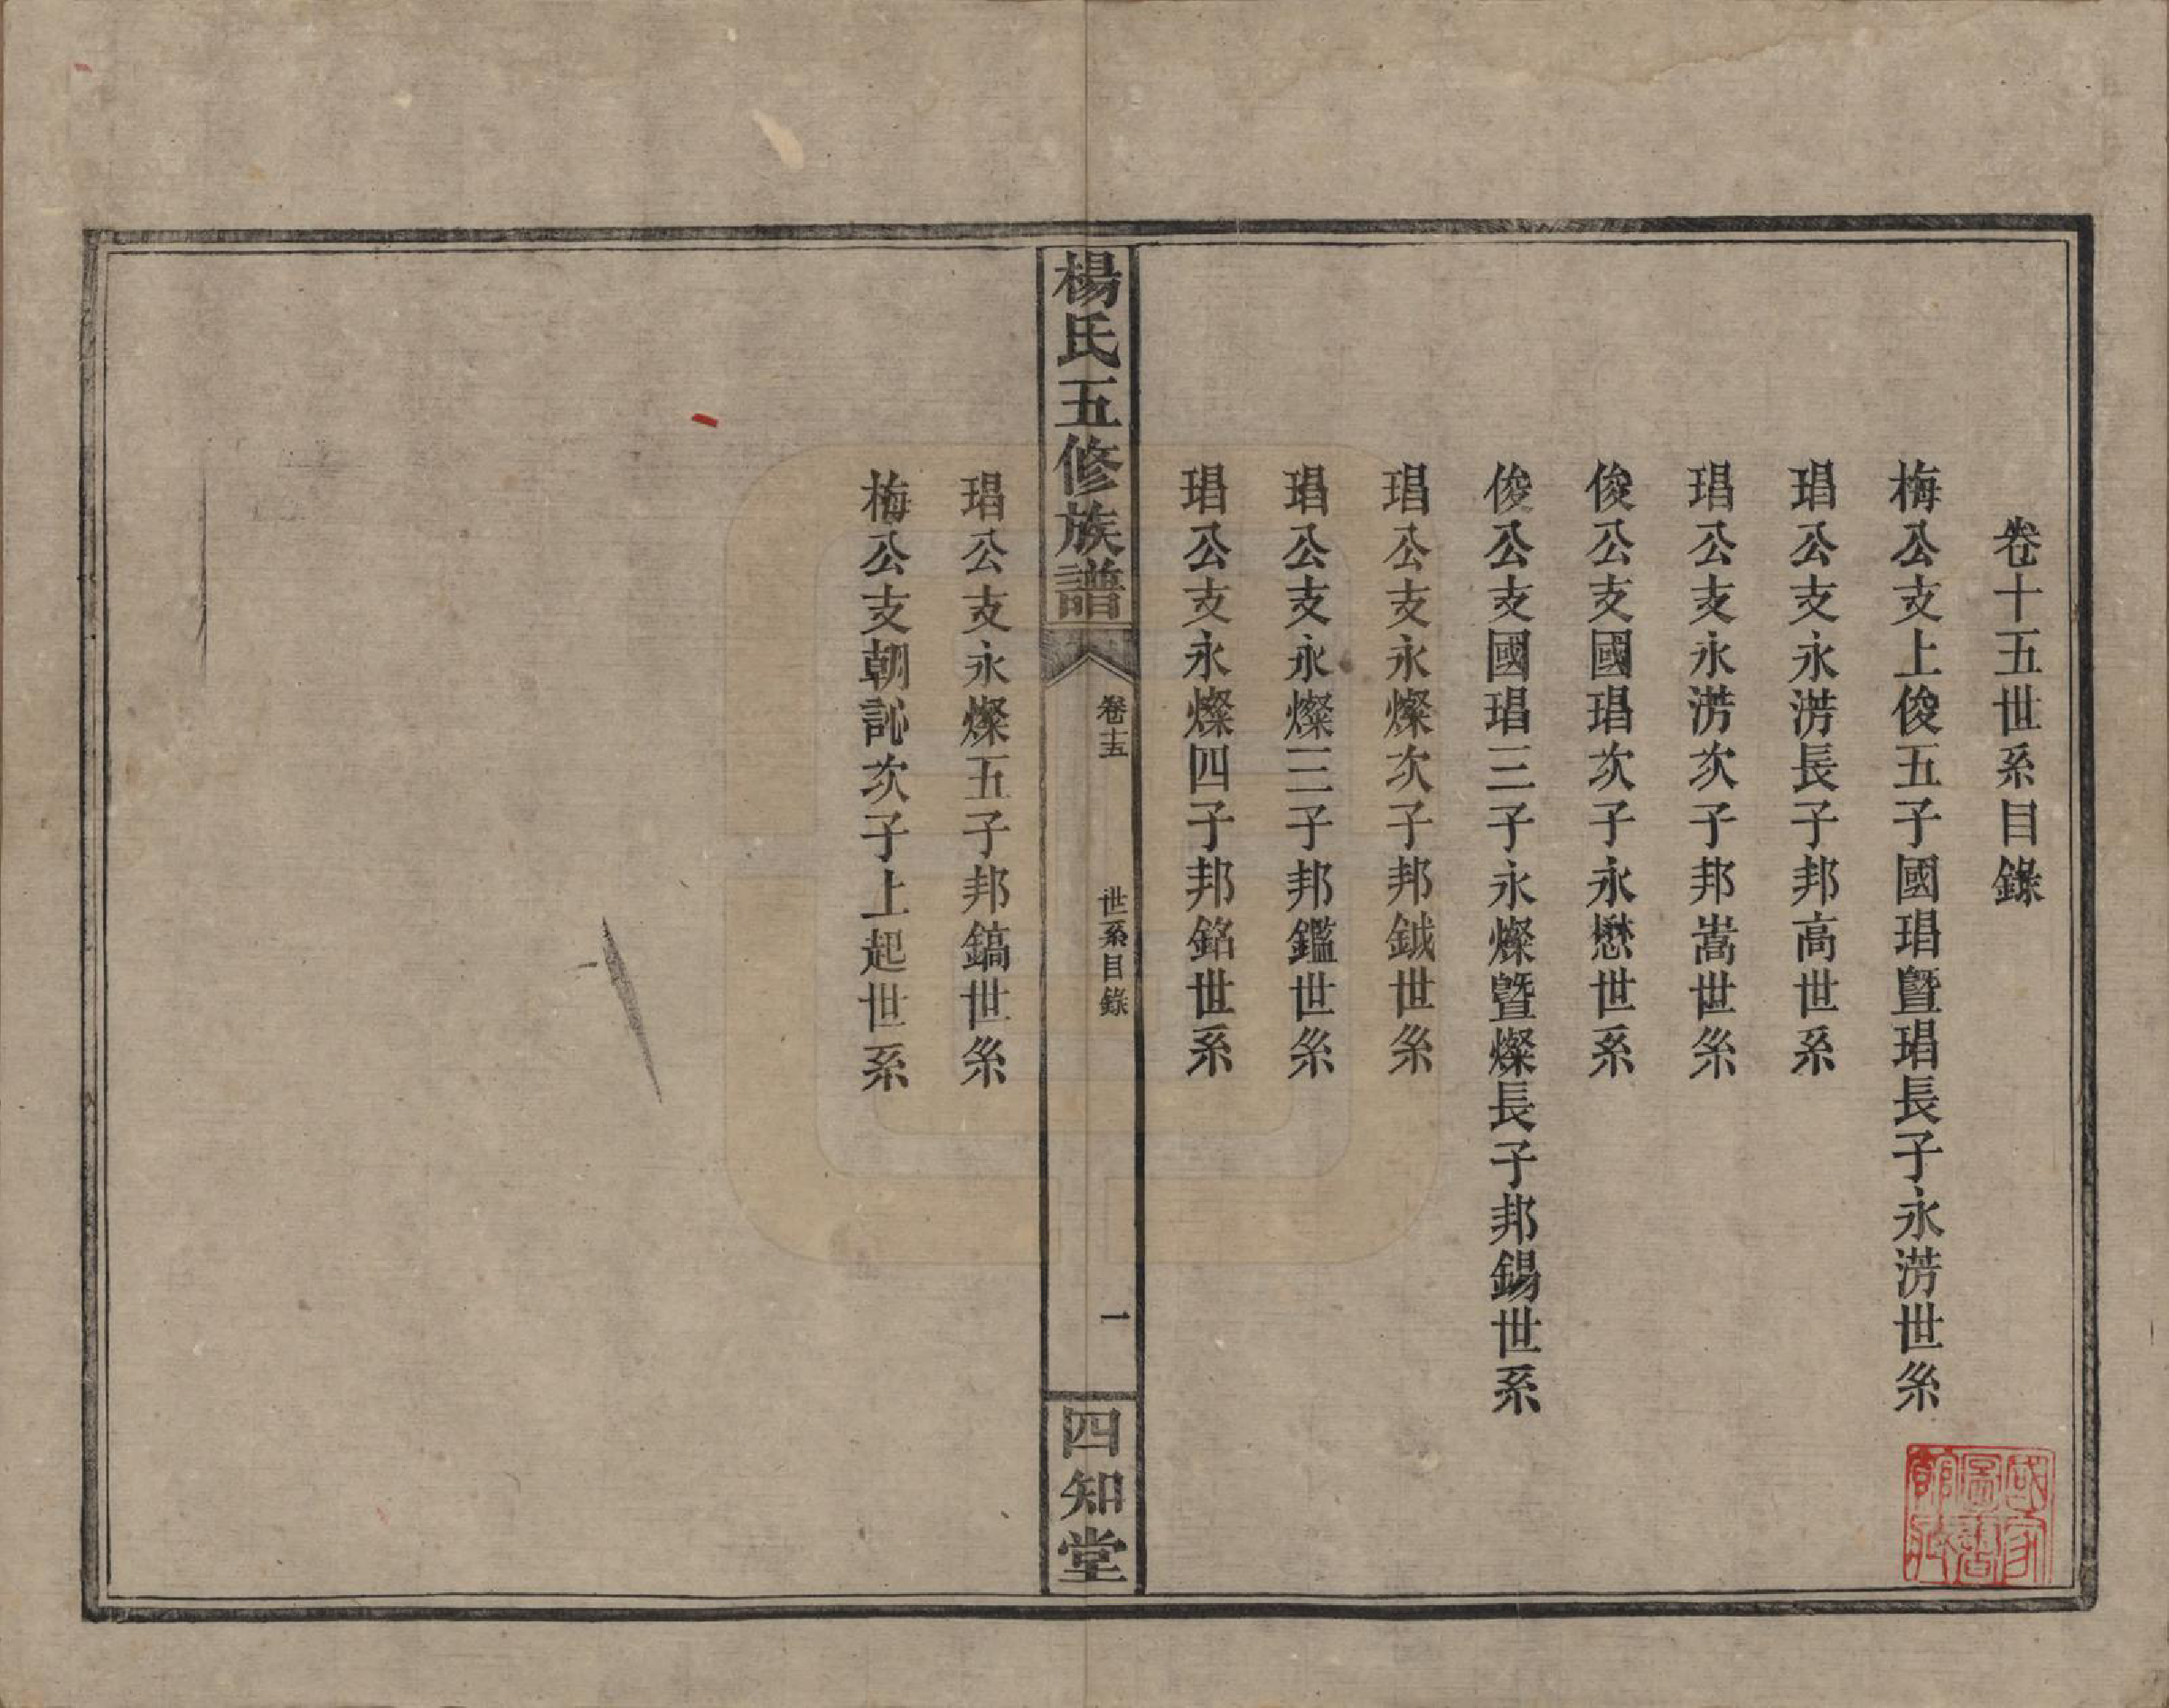 卷十五世系目錄
梅公支上俊五子國琩暨琩長子永淓世系
琩公支永淓長子邦高世系
琩公支永淓次子邦嵩世系
俊公支國琩次子永懋世系
俊公支國琩三子永燦暨燦長子邦錫世系
琩公支永燦次子邦鉞世系
琩公支永燦三子邦鑑世系
琩公支永燦四子邦銘世系
楊氏五修族譜
卷十五
世系目錄
一
四知堂
琩公支永燦五子邦鎬世系
梅公支朝訫次子上起世系
國家圖書館藏